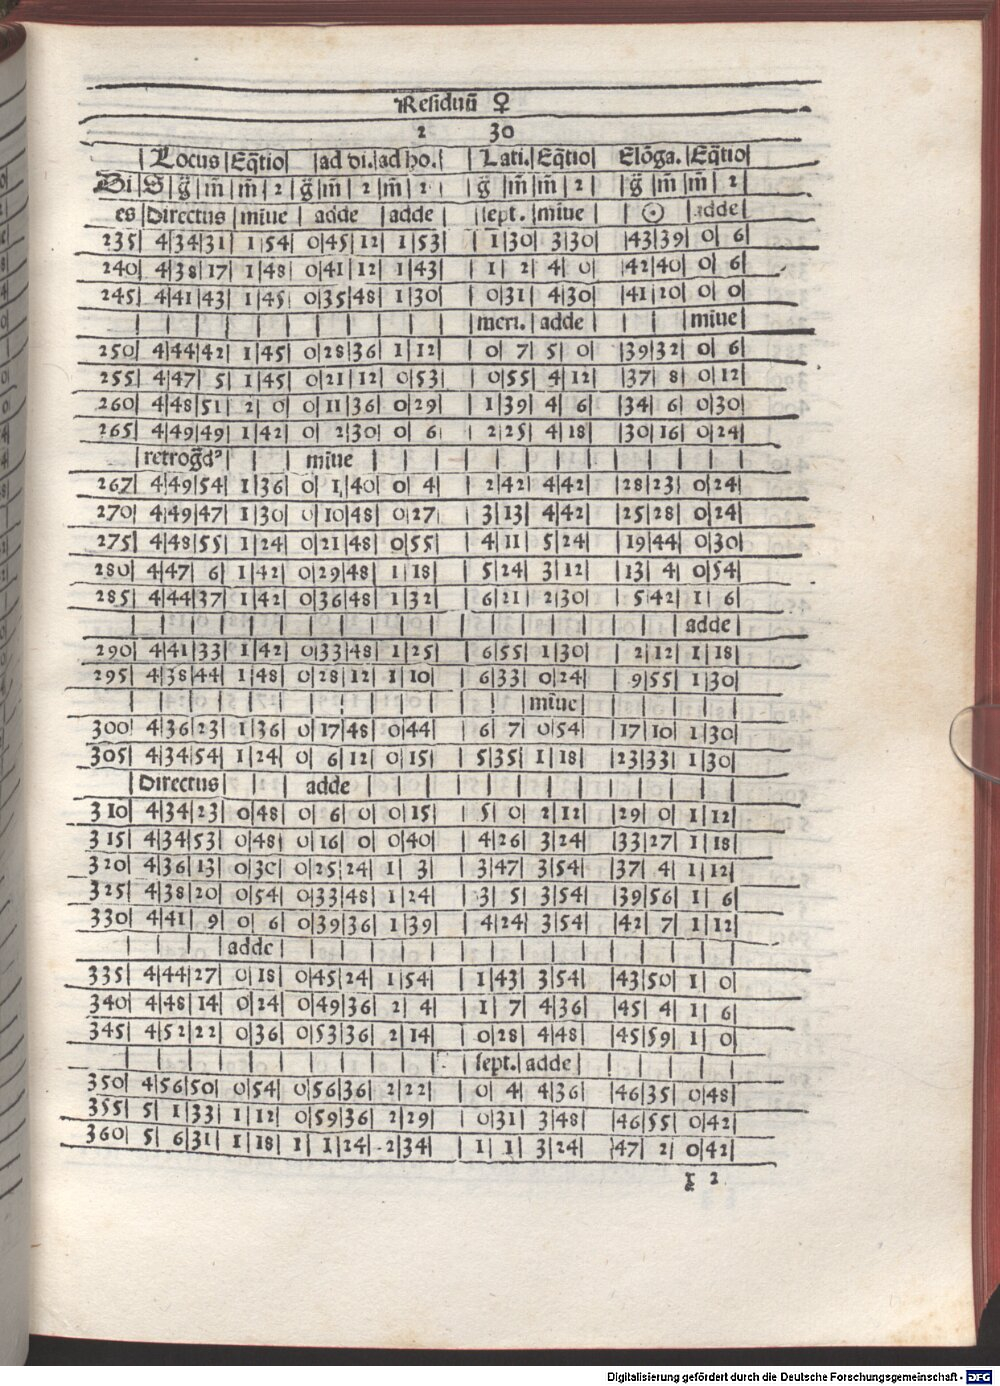 Residuũ ♀
2 30
|Locus|Eq̃tio| |ad di.|ad ho.| |Lati.|Eq̃tio| Elõga.|Eq̃tio|
Di|S|g̈|m̃|m̃|2|g̈|m̃|2|m̃|2| |g̈|m̃|m̃|2| |g̈|m̃|m̃|2|
es|Directus|miũe|adde|adde| |sept.|miũe| |☉|adde|
235| 4|34|31| 1|54| 0|45|12| 1|53| | 1|30| 3|30| |43|39| 0| 6|
240| 4|38|17| 1|48| 0|41|12| 1|43| | 1| 2| 4| 0| |42|40| 0| 6|
245| 4|41|43| 1|45| 0|35|48| 1|30| | 0|31| 4|30| |41|20| 0| 0|
|meri.|adde| |miũe|
250| 4|44|42| 1|45| 0|28|36| 1|12| | 0| 7| 5| 0| |39|32| 0| 6|
255| 4|47| 5| 1|45| 0|21|12| 0|53| | 0|55| 4|12| |37| 8| 0|12|
260| 4|48|51| 2| 0| 0|11|36| 0|29| | 1|39| 4| 6| |34| 6| 0|30|
265| 4|49|49| 1|42| 0| 2|30| 0| 6| | 2|25| 4|18| |30|16| 0|24|
|retrog̃dꝰ| | miũe |
267| 4|49|54| 1|36| 0| 1|40| 0| 4| | 2|42| 4|42| |28|23| 0|24|
270| 4|49|47| 1|30| 0|10|48| 0|27| | 3|13| 4|42| |25|28| 0|24|
275| 4|48|55| 1|24| 0|21|48| 0|55| | 4|11| 5|24| |19|44| 0|30|
280| 4|47| 6| 1|42| 0|29|48| 1|18| | 5|24| 3|12| |13| 4| 0|54|
285| 4|44|37| 1|42| 0|36|48| 1|32| | 6|21| 2|30| | 5|42| 1| 6|
|adde|
290| 4|41|33| 1|42| 0|33|48| 1|25| | 6|55| 1|30| | 2|12| 1|18|
295| 4|38|44| 1|48| 0|28|12| 1|10| | 6|33| 0|24| | 9|55| 1|30|
|miũe|
300| 4|36|23| 1|36| 0|17|48| 0|44| | 6| 7| 0|54| |17|10| 1|30|
305| 4|34|54| 1|24| 0| 6|12| 0|15| | 5|35| 1|18| |23|33| 1|30|
|Directus| | adde |
310| 4|34|23| 0|48| 0| 6| 0| 0|15| | 5| 0| 2|12| |29| 0| 1|12|
315| 4|34|53| 0|48| 0|16| 0| 0|40| | 4|26| 3|24| |33|27| 1|18|
320| 4|36|13| 0|30| 0|25|24| 1| 3| | 3|47| 3|54| |37| 4| 1|12|
325| 4|38|20| 0|54| 0|33|48| 1|24| | 3| 5| 3|54| |39|56| 1| 6|
330| 4|41| 9| 0| 6| 0|39|36| 1|39| | 4|24| 3|54| |42| 7| 1|12|
|adde|
335| 4|44|27| 0|18| 0|45|24| 1|54| | 1|43| 3|54| |43|50| 1| 0|
340| 4|48|14| 0|24| 0|49|36| 2| 4| | 1| 7| 4|36| |45| 4| 1| 6|
345| 4|52|22| 0|36| 0|53|36| 2|14| | 0|28| 4|48| |45|59| 1| 0|
|sept.|adde|
350| 4|56|50| 0|54| 0|56|36| 2|22| | 0| 4| 4|36| |46|35| 0|48|
355| 5| 1|33| 1|12| 0|59|36| 2|29| | 0|31| 3|48| |46|55| 0|42|
360| 5| 6|31| 1|18| 1| 1|24| 2|34| | 1| 1| 3|24| |47| 2| 0|42|
2
Digitalisierung gefördert durch die Deutsche Forschungsgemeinschaft - DFG